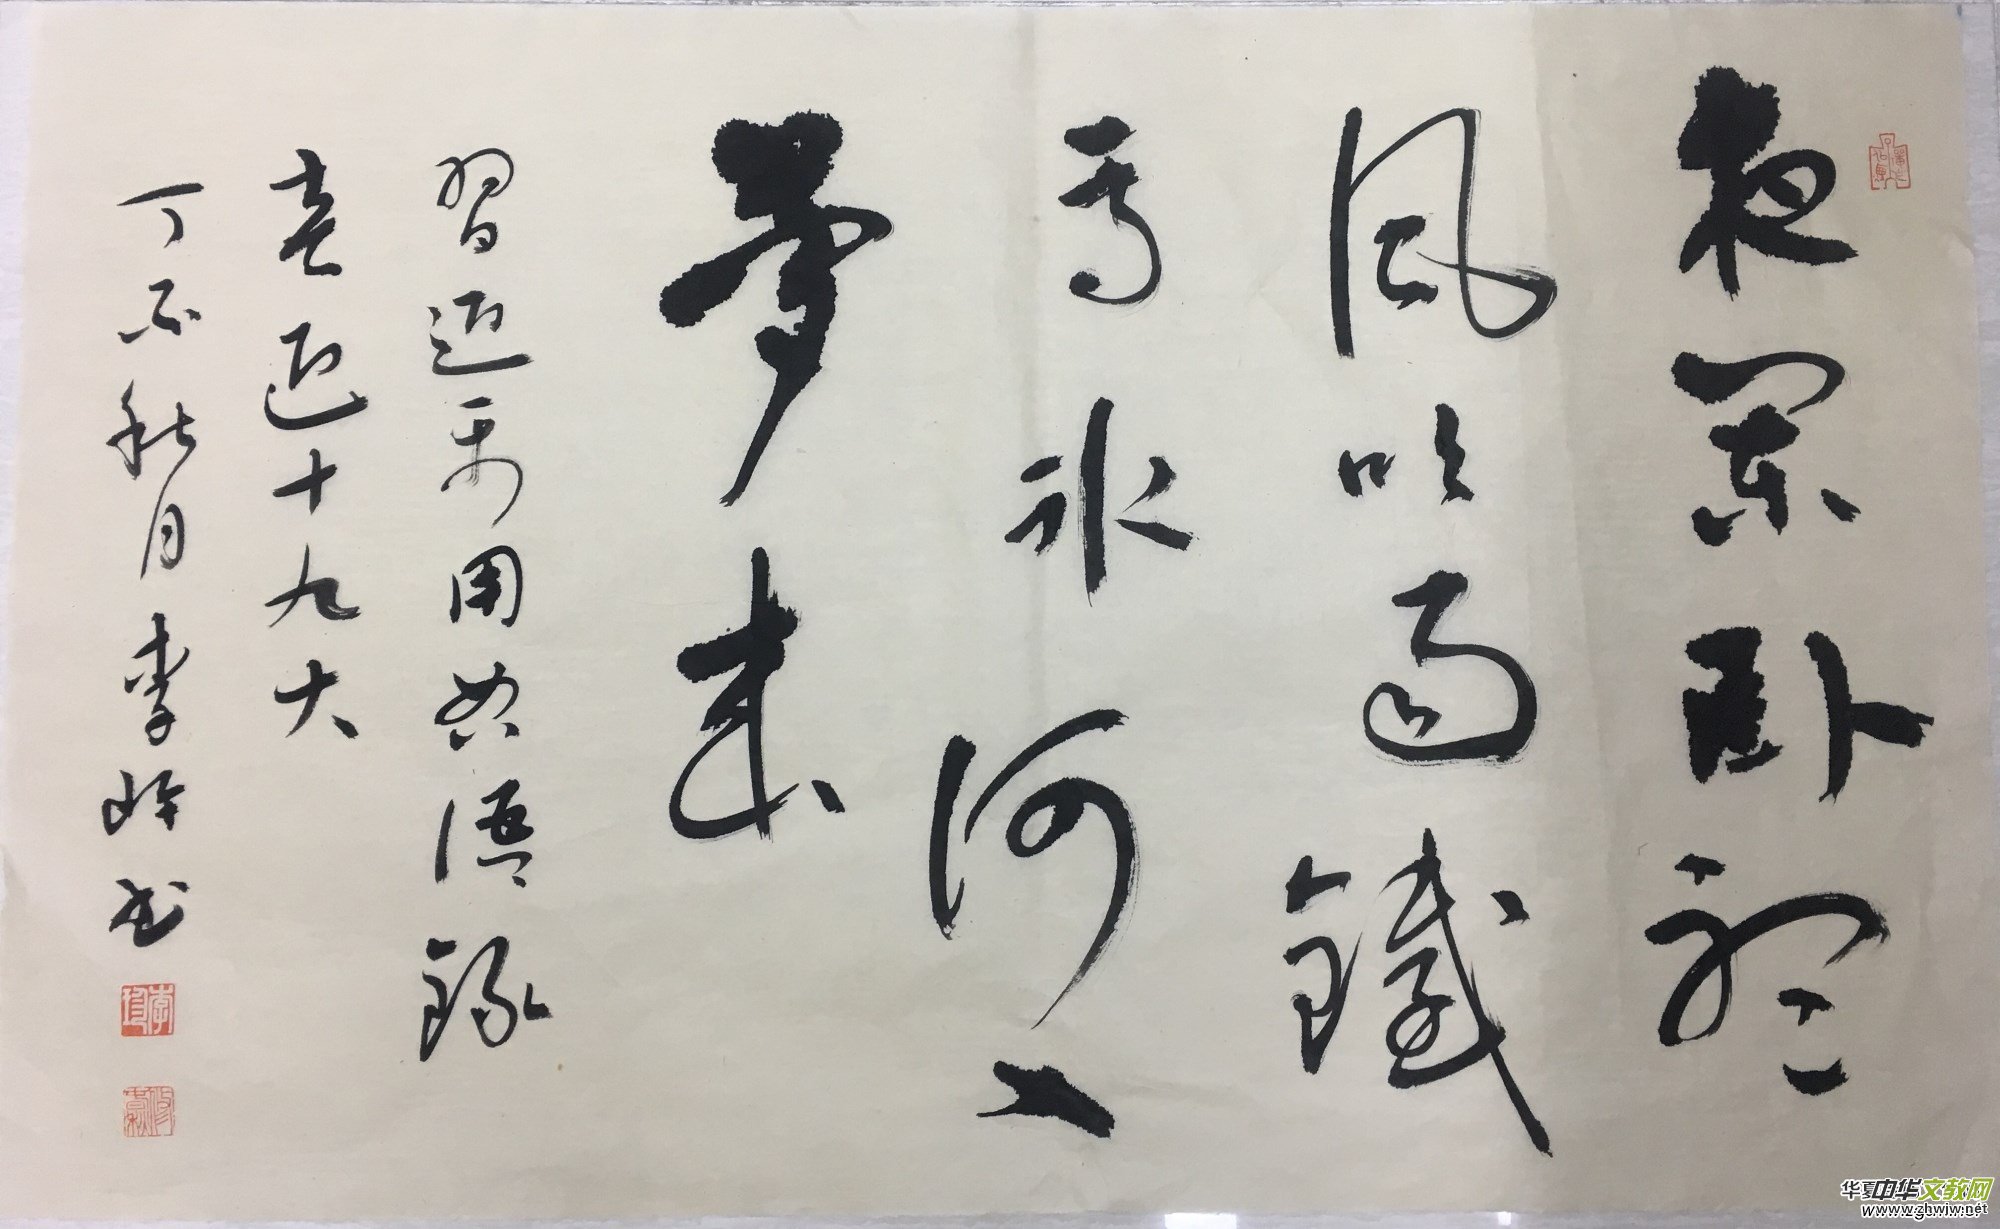 夜阑卧听
风吹雨铁
马冰河入
梦来
习近平用典语录
喜迎十九大
丁酉秋月李玲书
华夏中华文教网
www.zghwjw.net